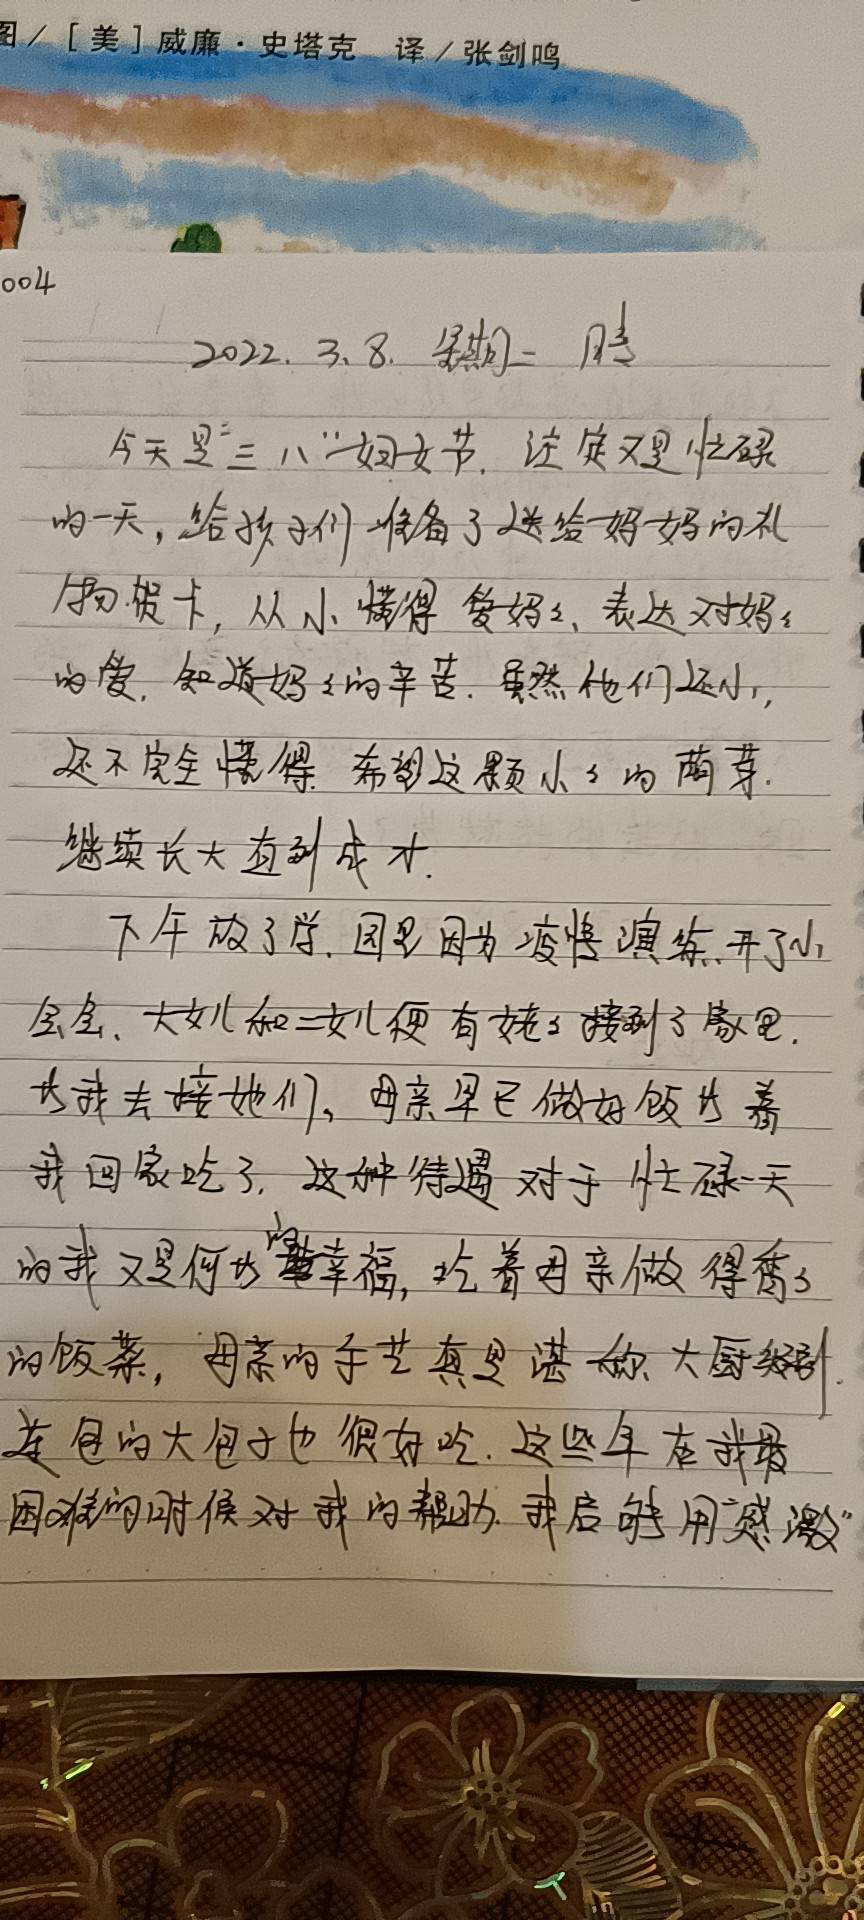 图/［美］威廉·史塔克 译/张剑鸣
004
2022.3.8. 星期二 晴
今天是“三八”妇女节.注定又是忙碌
的一天,给孩子们准备了送给妈妈的礼
物.贺卡,从小懂得爱妈々、表达对妈々
的爱.知道妈々的辛苦.虽然他们还小,
还不完全懂得.希望这颗小々的萌芽.
继续长大直到成才.
下午放了学.园里因为疫情演练.开了小
会会、大女儿和二女儿便有姥々接到了家里.
当我去接她们、母亲早已做好饭等着
我回家吃了.这种待遇对于忙碌一天
的我又是何等的幸福,吃着母亲做得香々
的饭菜,母亲的手艺真是堪称大厨级别.
连包的大包子也很好吃.这些年在我最
困难的时候对我的帮助.我后能用“感激”